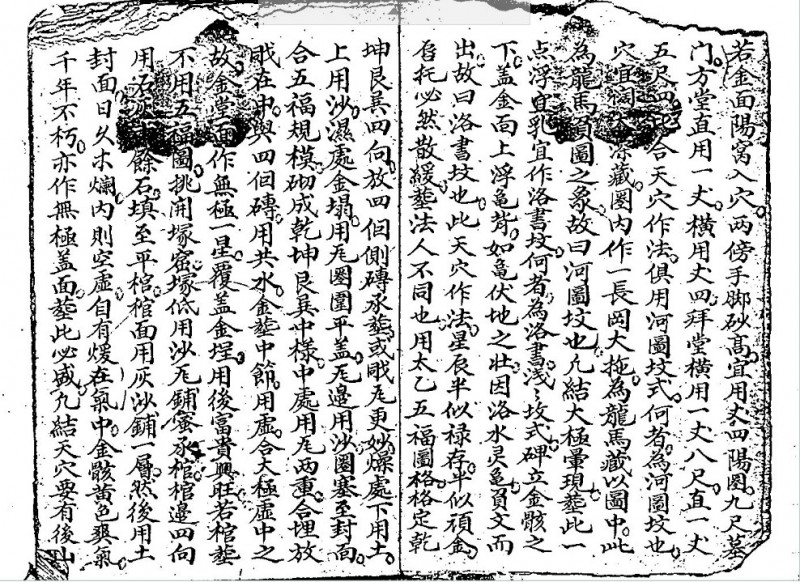 若金面陽窩入穴两傍手脚砂髙宜用丈四陽圏九尺墓
门方堂直用一丈横用丈四拜堂横用一丈八尺直一丈
五尺四此合天穴作法俱用河圖坟式何者為河圖坟也
穴宜濶大深藏圏内作一長岡大拖為龍馬藏以圖中此
為龍馬負圖之象故曰河圖坟也凢結大極暈現塟此一
点浮宜乳宜作洛書坟何者為洛書浅〻坟式碑立金骸之
下盖金面上浮亀背如亀伏地之壮因洛水灵亀負文而
出故曰洛書坟也此天穴作法星辰半似禄存半似頑金
召托必然散緩塟法人不同也用太乙五福圖格格定乾
坤艮巽四向放四個側磚承塟或戝瓦更妙燥處下用土
上用沙濕處金塌用瓦圏圍平盖瓦邉用沙圏塞至封面
合五福規模砌成乾坤艮巽中様中處用瓦两重合埋放
戝在中與四個磚用共水金塟中節用虚合大極虚中之
故金堂面作無極一星覆盖金埕用後富貴興旺若棺塟
不用五福圖挑開塚窑塚低用沙瓦鋪蜜承棺棺邉四向
用石灰餘石填至平棺棺面用灰沙鋪一層然後用土
封面日久木爛内則空虚自有煖在氣中金骸黄色巽氣
千年不朽亦作無極盖面塟此必盛凢結天穴要有後山